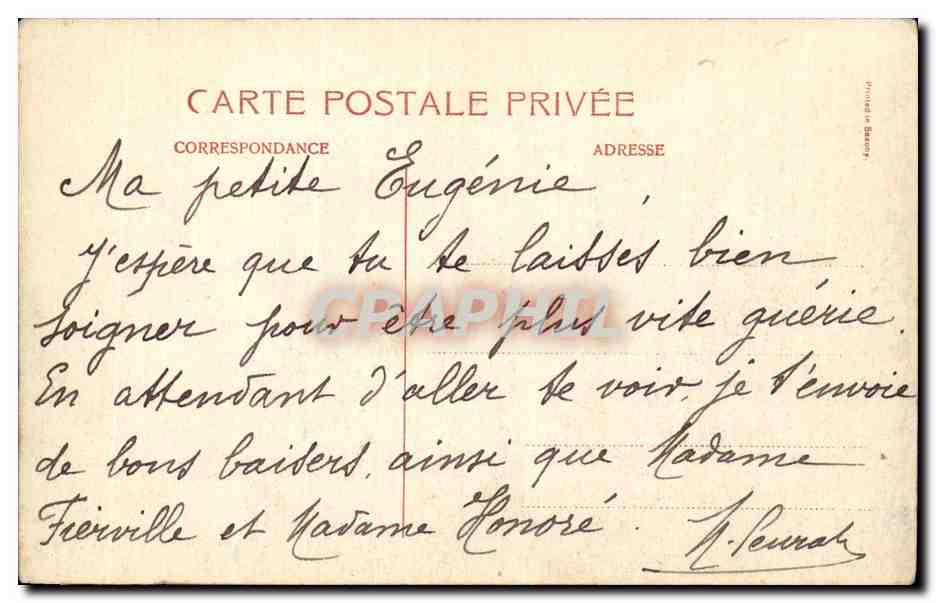 CARTE POSTALE PRIVÉE
CORRESPONDANCE ADRESSE
Printed in Saxony.
Ma petite Eugénie,
J'espère que tu te laisses bien
soigner pour être plus vite guérie.
En attendant d'aller te voir, je t'envoie
de bons baisers, ainsi que Madame
Fierville et Madame Honoré.
CPAPHIL